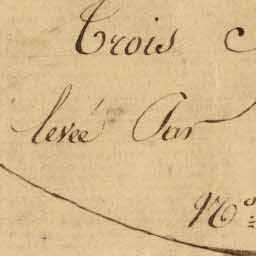 Trois
levée Par
No